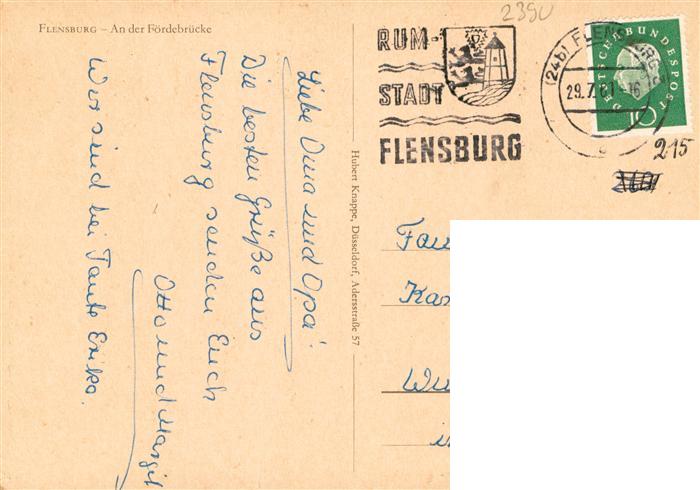 FLENSBURG – An der Fördebrücke
Liebe Oma und Opa!
Die besten Grüße aus
Flensburg senden Euch
Otto und Margit
Wir sind bei Tante Erika.
Hubert Knappe, Düsseldorf, Adersstraße 57
2390
RUM-
STADT
FLENSBURG
(24b) FLENSBURG
29.7.61-16
DEUTSCHE BUNDESPOST
10
215
Fam
Kas
Wu